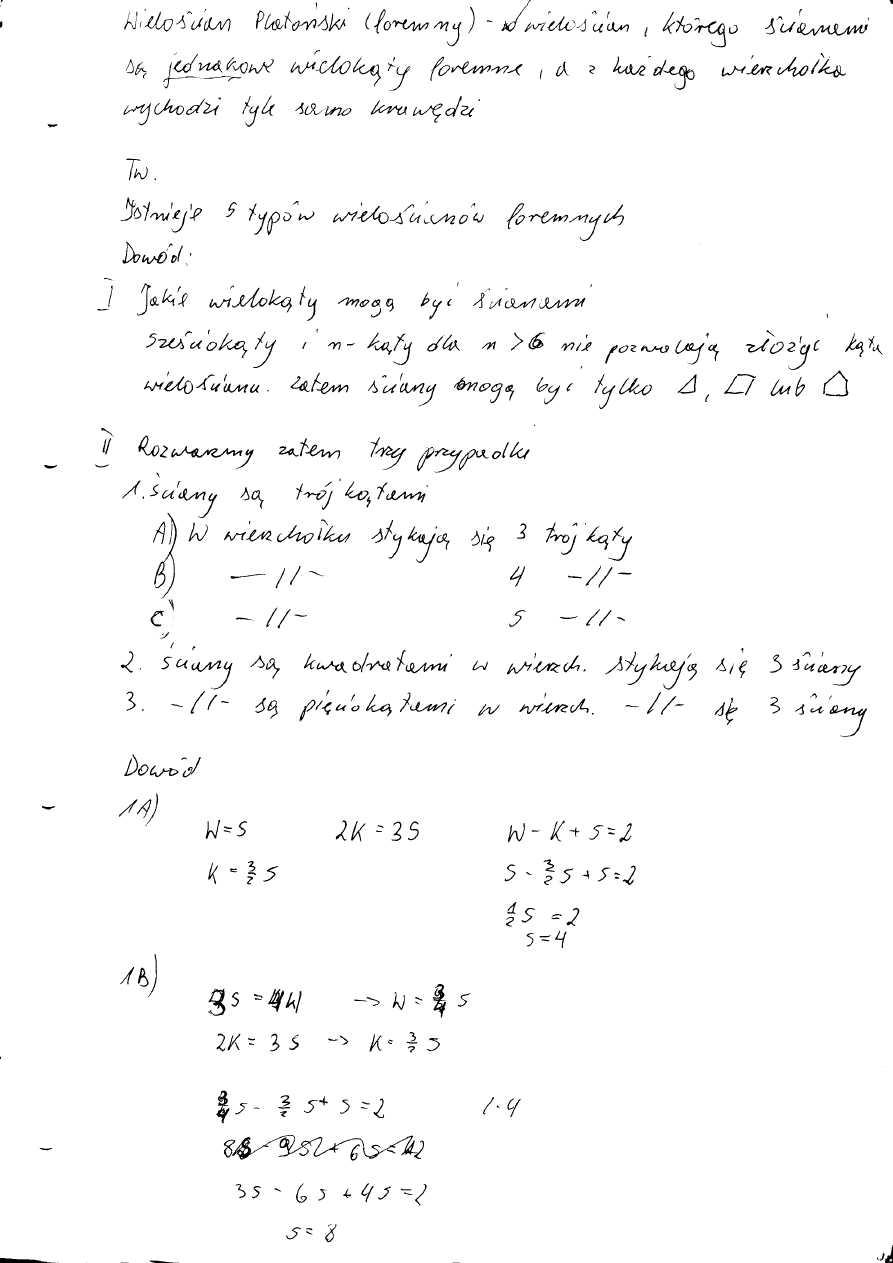 Wielościan Platoński (foremny) - wielościan, którego ścianami
są jednakowe wielokąty foremne, a z każdego wierzchołka
wychodzi tyle samo krawędzi
Tw.
Istnieje 5 typów wielościanów foremnych
Dowód:
I Jakie wielokąty mogą być ścianami
sześciokąty i n-kąty dla n > 6 nie pozwalają złożyć kąta
wielościanu. Zatem ściany mogą być tylko △, □ lub ⬠
II Rozważmy zatem trzy przypadki
1. ściany są trójkątami
A) W wierzchołku stykają się 3 trójkąty
B) -//- 4 -//-
C) -//- 5 -//-
2. ściany są kwadratami w wierzch. stykają się 3 ściany
3. -//- są pięciokątami w wierzch. -//- się 3 ściany
Dowód
1A)
W=S 2K=3S W-K+S=2
K=3/2 S S-3/2 S+S=2
1/2 S=2
S=4
1B)
3S=4W -> W=3/4 S
2K=3S -> K=3/2 S
3/4 S - 3/2 S + S = 2 /·4
3S - 6S + 4S = 2
S = 8